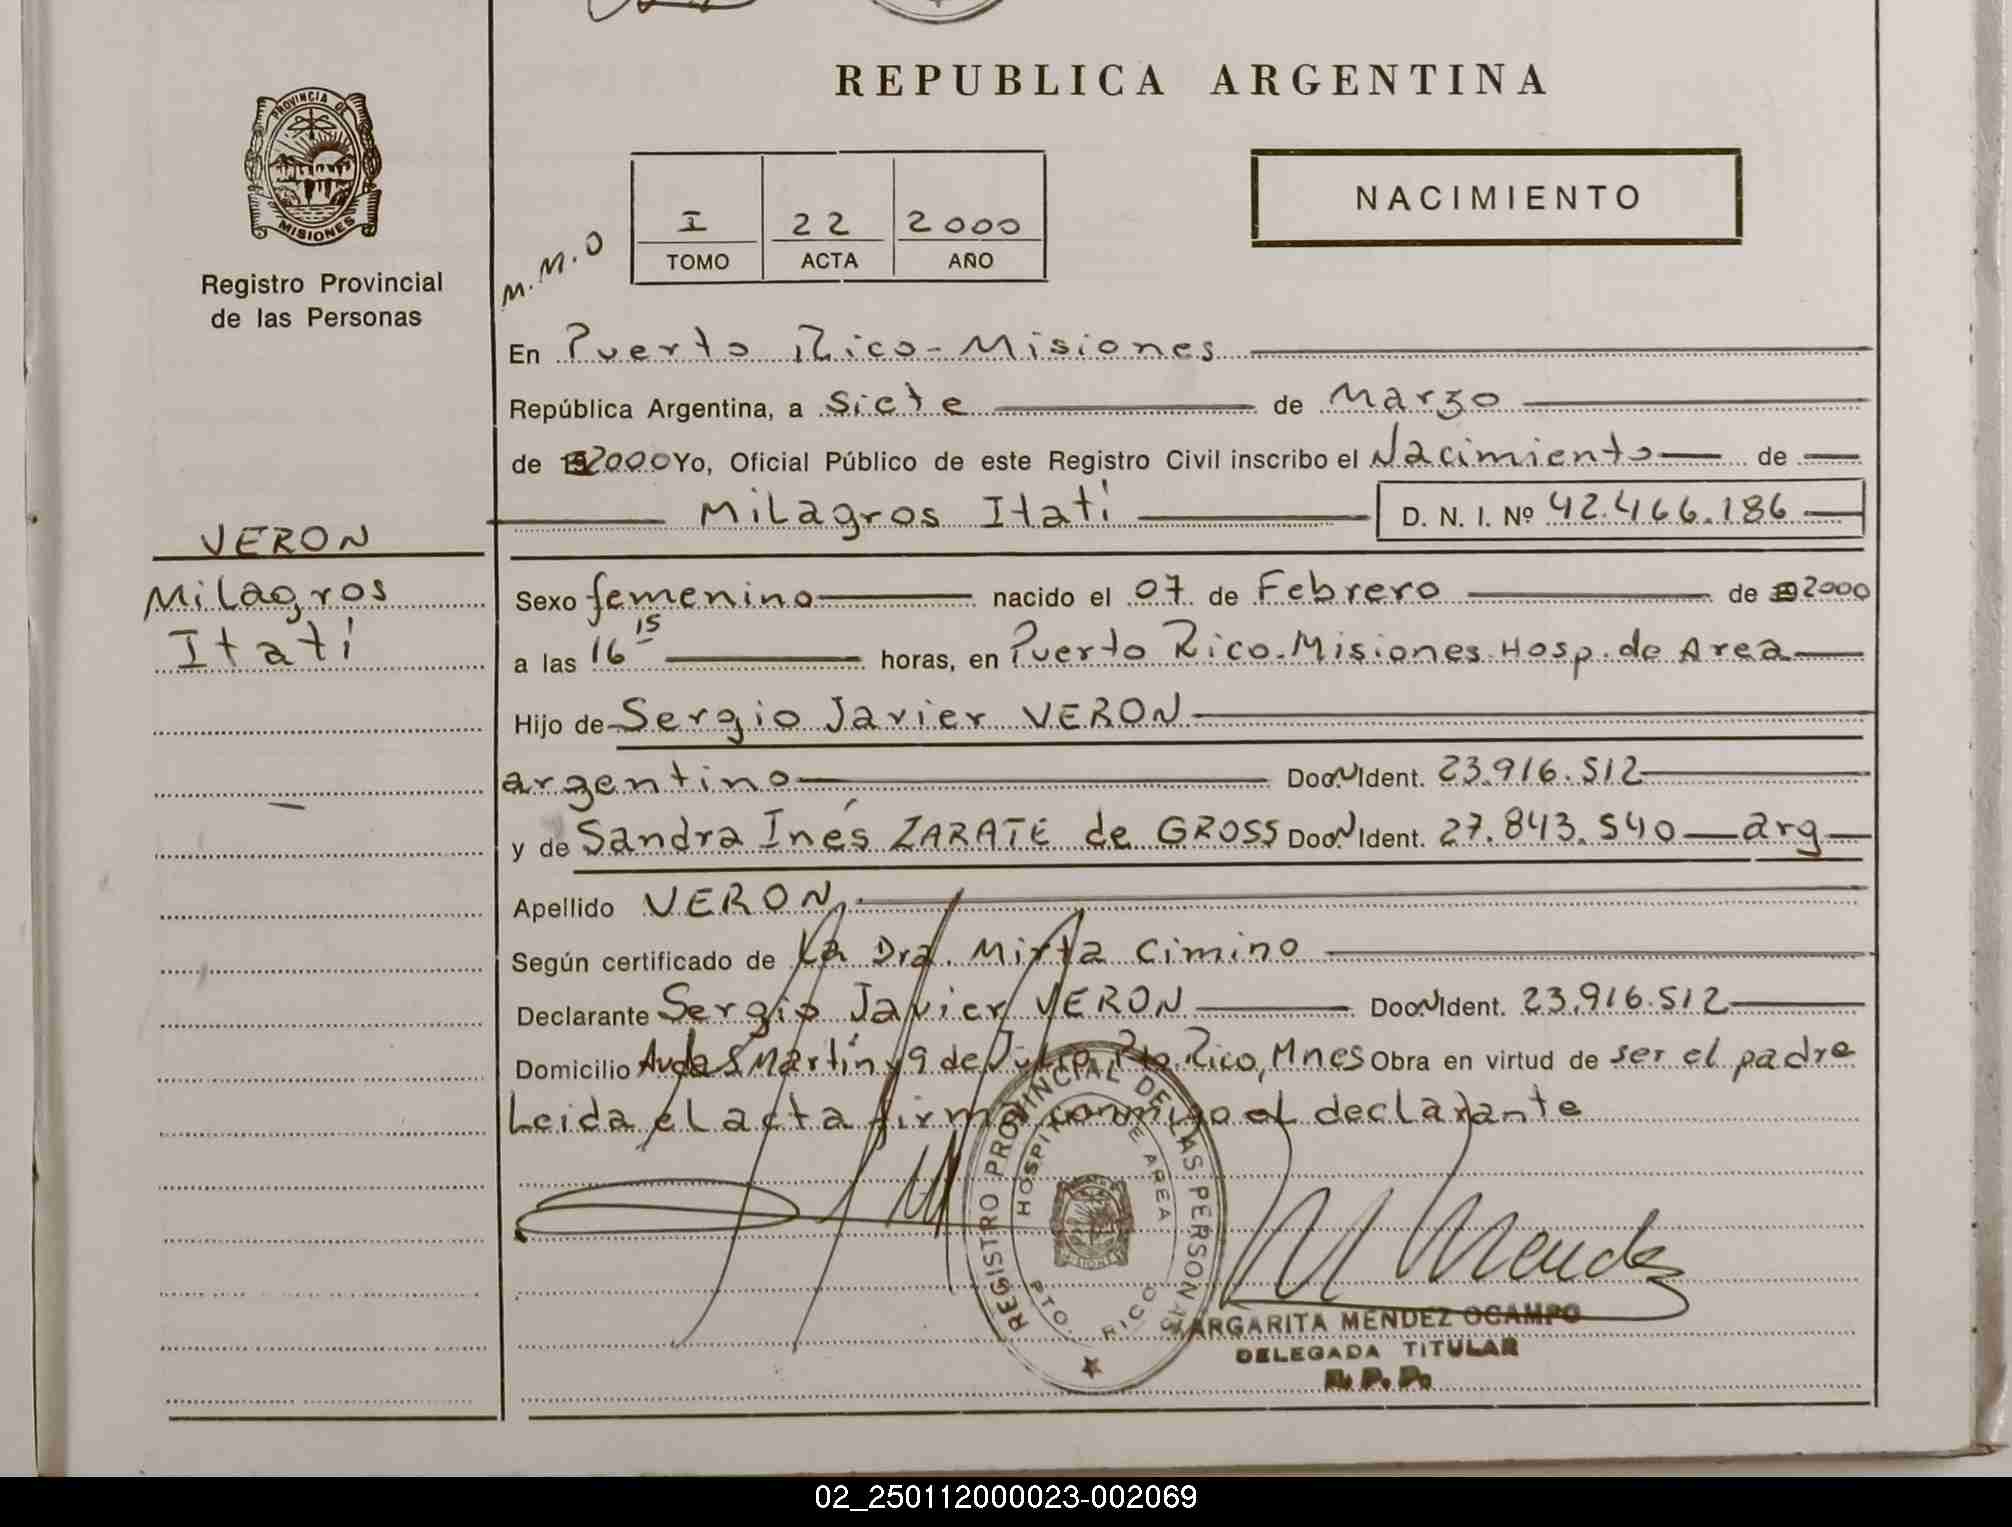 REPUBLICA ARGENTINA
PROVINCIA DE
MISIONES
Registro Provincial
de las Personas
NACIMIENTO
I 22 2000
TOMO ACTA AÑO
M.M.O
En Puerto Rico - Misiones
República Argentina, a siete de Marzo
de 2000 Yo, Oficial Público de este Registro Civil inscribo el Nacimiento de
Milagros Itatí D. N. I. Nº 42.466.186
VERON
Milagros
Itatí
Sexo femenino nacido el 07 de Febrero de 2000
a las 16 15 horas, en Puerto Rico. Misiones. Hosp. de Area
Hijo de Sergio Javier VERON
argentino Doc. Ident. 23.916.512
y de Sandra Inés ZARATE de GROSS Doc. Ident. 27.843.540 arg
Apellido VERON
Según certificado de La Dra. Mirta Cimino
Declarante Sergio Javier VERON Doc. Ident. 23.916.512
Domicilio Avda S Martín y 9 de Julio Pto. Rico, Mnes Obra en virtud de ser el padre
Leida el acta firma conmigo el declarante
REGISTRO PROVINCIAL DE LAS PERSONAS
HOSPITAL DE AREA
MISIONES
PTO. RICO
M Mendez
MARGARITA MENDEZ OCAMPO
DELEGADA TITULAR
R. P. P.
02_250112000023-002069